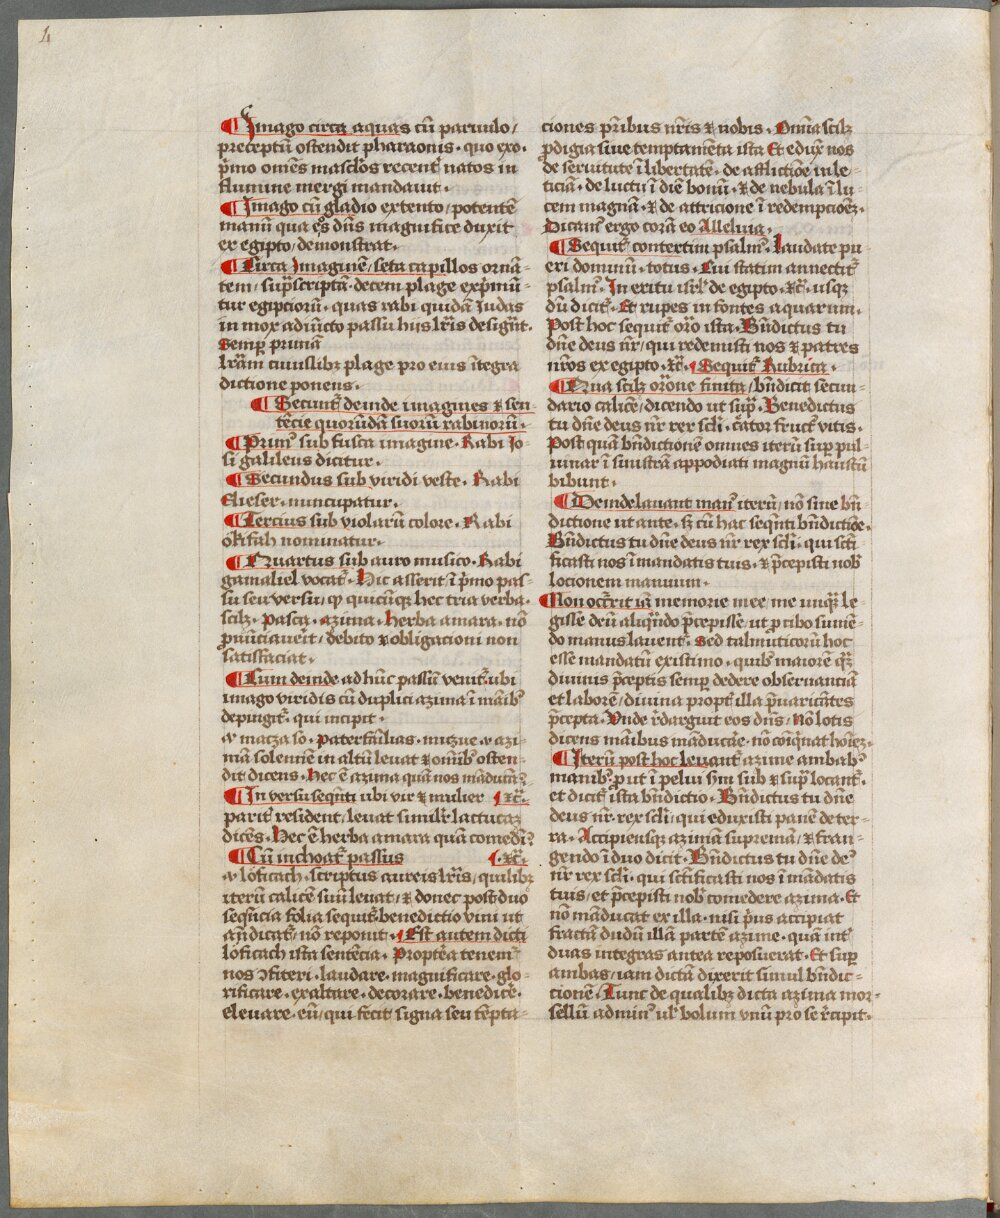 4
¶ Imago circa aquas cū paruulo /
preceptū ostendit pharaonis · quo exo·
p̄mo omēs masclōs recent᷑ natos in
flumine mergi mandauit ·
¶ Imago cū gladio extento / potentē
manū qua eos dn̄s magnifice duxit
ex egipto / demonstrat ·
¶ Circa Imaginē / seta capillos ornā-
tem / sup̄scriptā · decem plage exp̄mū-
tur egiptiorū · quas rabi quidā Iudas
in mox adiūcto passu hus lr̄is design̄t ·
Semp̲ primā
lr̄am cuiuslibꝫ plage pro eius ītegra
dictione ponens ·
¶ Secunt᷑ deinde imagines ⁊ sen-
tēcie quorūdā suorū rabinorū ·
¶ Primꝰ sub fusca imagine · Rabi Jo-
si galileus dicitur ·
¶ Secundus sub viridi veste · Rabi
elieser · nuncupatur ·
¶ Tercius sub violarū colore · Rabi
okifah nominatur ·
¶ Quartus sub auro musico · Rabi
gamaliel vocat᷑ · Hic asserit ī p̄mo pas-
su seu versu / ꝙ quicūqꝫ hec tria verba ·
scilꝫ · Pasca · azima · herba amara · nō
p̲nūciauerit / debito ⁊ obligacioni non
satisfaciat ·
¶ Cum deinde ad hūc passū venit᷑ · ubi
imago viridis cū duplici azima ī māibꝰ
depingit᷑ · qui incipit ·
macza so · paterfāilias · mizue azi-
mā solennē in altū leuat ⁊ omībꝰ osten-
dit dicens · Hec ē azima quā nos māducāꝰ ·
¶ In versu seqn̄ti ubi vir ⁊ mulier ¶ ⁊c̄ ·
parit᷑ resident / leuat simil᷑r lactucaꝫ
dicēs · Hec ē herba amara quā comedīꝰ
¶ Cū inchoat᷑ passus ¶ · ⁊c̄ ·
loficach · scriptus aureis lr̄is / quilibꝫ
iterū calicē suū leuat / ⁊ donec post duo
seqn̄cia folia sequit᷑ · benedictio vini ut
andicat᷑ / nō reponit · ¶ Est autem dicti
loficach ista sentēcia · Proptēa tenemꝰ
nos ꝯfiteri · laudare · magnificare · glo-
rificare · exaltare · decorare · benedicē ·
eleuare · eū / qui fecit signa seu tēpta-
ciones p̄ribus nr̄is ⁊ nobis · Omīa scilꝫ
p̲digia siue temptamēta ista Et eduxit nos
de seruitute ī libertatē · de afflictiōe in le-
ticiā · de luctu ī diē bonū · ⁊ de nebula ī lu-
cem magnā · ⁊ de attricione ī redempcioēꝫ ·
Dicamꝰ ergo corā eo Alleluia ·
¶ Sequit᷑ contextim psalmꝰ · Laudate pu-
eri dominū · totus · Cui statim annectit᷑
psalmꝰ · In exitu isrl̄ de egipto · ⁊c̄ · usqꝫ
dū dicit᷑ · Et rupes in fontes aquarum ·
Post hoc sequit᷑ or̄o ista · Bn̄dictus tu
dn̄e deus nr̄ / qui redemisti nos ⁊ patres
nr̄os ex egipto · ⁊c̄ · ¶ Sequit᷑ Rubrica ·
¶ Qua scilꝫ or̄one finita / bn̄dicit secun-
dario calicē / dicendo ut sup̄ · Benedictus
tu dn̄e deus nr̄ rex scl̄i · c̄ator fructꝰ vitis ·
Post quā bn̄dictionē omnes iterū sup̲ pul-
uinar ī sinistrā appodiati magnū haustū
bibunt ·
¶ Deinde lauant manꝰ iterū / nō sine bn̄-
dictione ut ante · sꝫ cū hac seqn̄ti bn̄dictiōe ·
Bn̄dictus tu dn̄e deus nr̄ rex scl̄i · qui scti-
ficasti nos ī mandatis tuis · ⁊ p̄cepisti nob̄
locionem manuum ·
¶ Non occ᷑rit memorie mee / me unqꝫ le-
gisse deū aliqn̄do p̄cepisse / ut p̲ cibo sumē-
do manus lauent᷑ · Sed talmuticorū hoc
esse mandatū existimo · quibꝰ maiorē
diuinis p̄ceptis semp̲ dedere obseruanciā
et laborē / diuina propt᷑ illa p̄uaricātes
p̄cepta · Vnde r̄darguit eos dn̄s / Nō lotis
dicens māibus māducāe · nō coīq̄nat hoīeꝫ ·
¶ Iterū post hoc leuant᷑ azime ambabꝰ
manibꝰ · p̲ut ī pelui sim̄ sub ⁊ sup̲ locant᷑ ·
et dicit᷑ ista bn̄dictio · Bn̄dictus tu dn̄e
deus nr̄ · rex scl̄i / qui eduxisti panē de ter-
ra · Accipiensqꝫ azimā supremā / ⁊ fran-
gendo ī duo dicit · Bn̄dictus tu dn̄e deꝰ
nr̄ rex scl̄i · qui sctificasti nos ī mādatis
tuis / et p̄cepisti nob̄ comedere azima · Et
nō māducat ex illa · nisi p̄us accipiat
fractā dudū illā partē azime · quā int᷑
duas integras antea reposuerat · Et sup̲
ambas / iam dictā dixerit simul bn̄dic-
tionē / Tunc de qualibꝫ dicta azima mor-
sellū ad minꝰ ul᷑ bolum vnū pro se r̄cipit ·